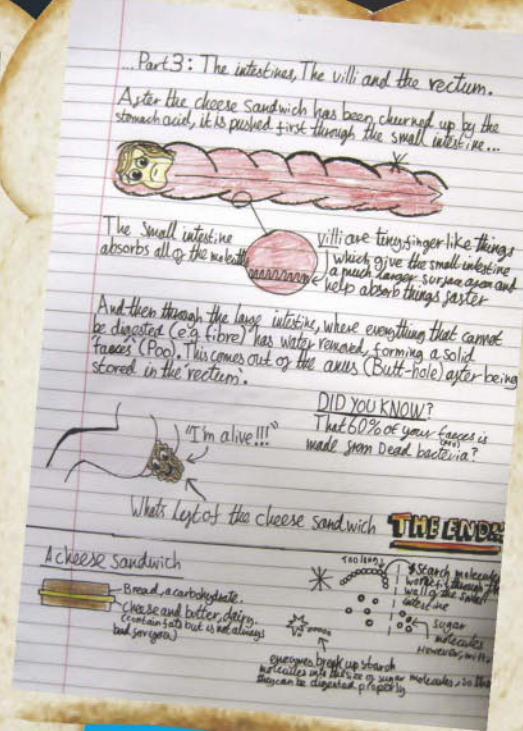 ...Part 3: The intestines, The villi and the rectum.
After the cheese sandwich has been churned up by the
stomach acid, it is pushed first through the small intestine...
The small intestine
absorbs all of the
villi are tiny finger like things
which give the small intestine
a much larger surface area and
help absorb things faster
And then through the large intestine, where everything that cannot
be digested (e.g fibre) has water removed, forming a solid
'faeces' (Poo). This comes out of the anus (Butt-hole) after being
stored in the 'rectum'.
DID YOU KNOW?
That 60% of your faeces is
(poo)
made from Dead bacteria?
"I'm alive!!!"
Whats left of the cheese sandwich
THE END
A cheese sandwich
Bread, a carbohydrate.
Cheese and butter, dairy.
(contain fats but is not always
bad for you)
Too long
Starch molecules
wont fit through the
wall of the small
intestine
sugar
molecules
However, will
enzymes break up starch
molecules into the size of sugar molecules, so that
they can be digested properly